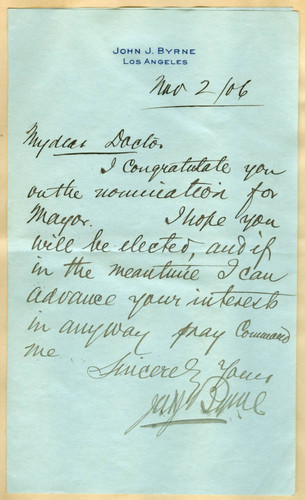 JOHN J. BYRNE
LOS ANGELES
Nov 2/06
My dear Doctor
I congratulate you
on the nomination for
Mayor. I hope you
will be elected, and if
in the meantime I can
advance your interests
in anyway pray Command
me
Sincerely Yours
Jno J Byrne